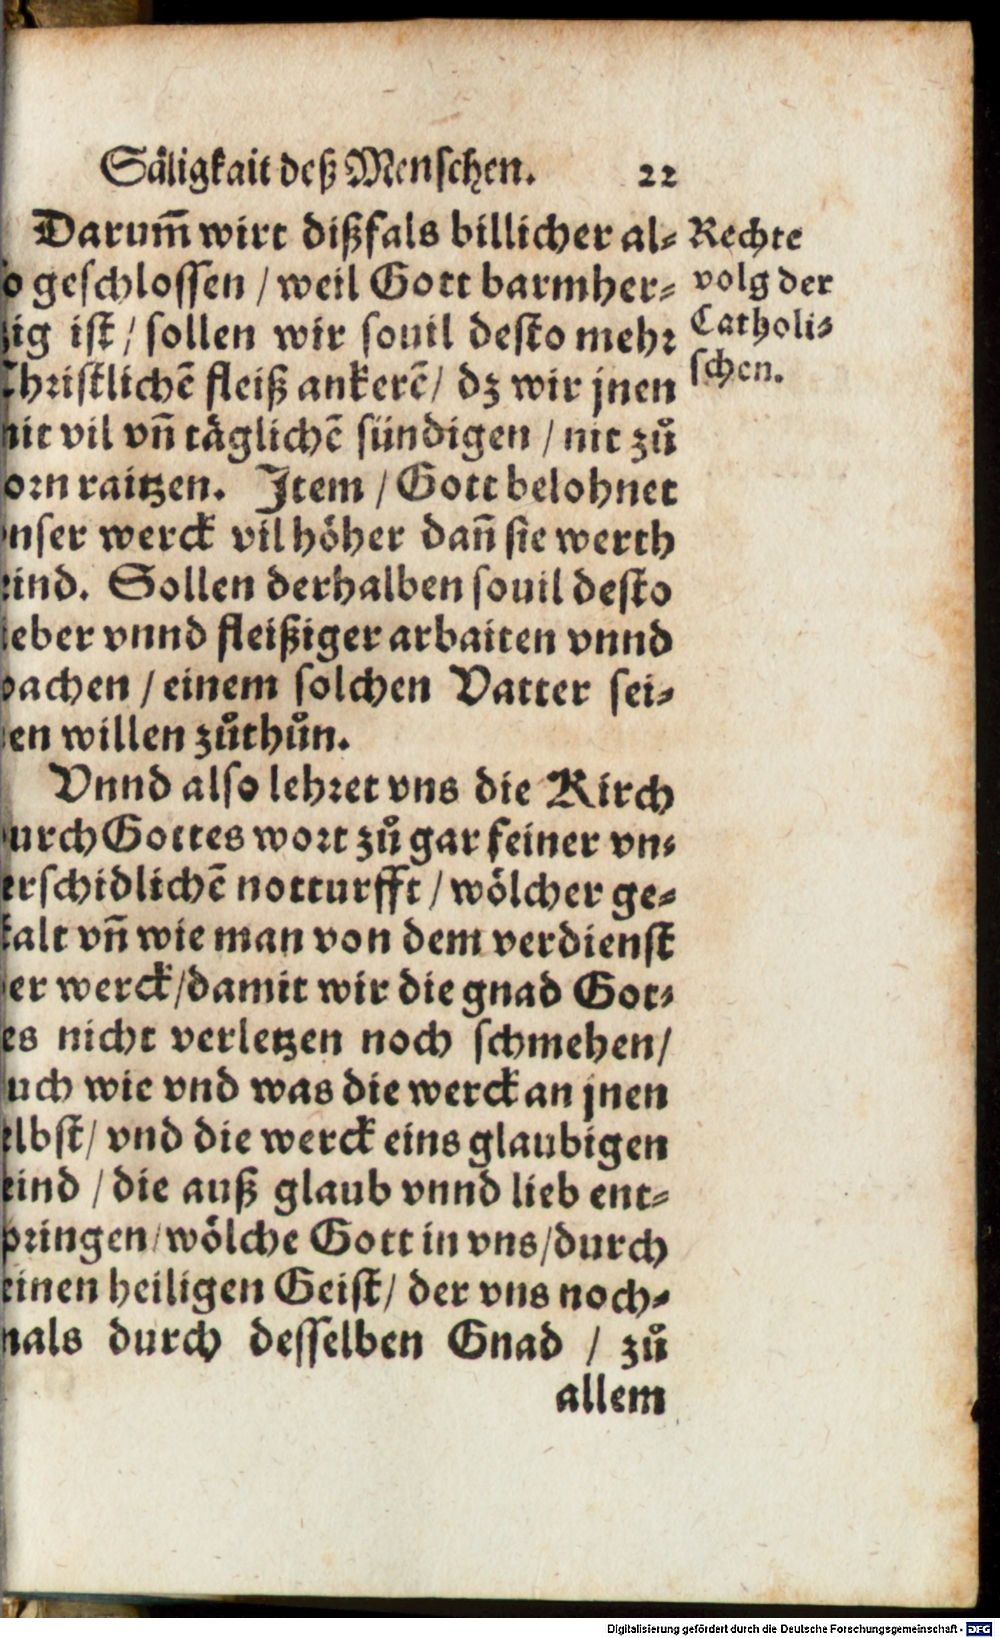 Säligkait deß Menschen. 22
Darum̃ wirt dißfals billicher al⸗
so geschlossen / weil Gott barmher⸗
zig ist / sollen wir souil desto mehr
Christlichẽ fleiß ankerẽ / dz wir jnen
mit vil vñ täglichẽ sündigen / nit zů
zorn raitzen. Item / Gott belohnet
vnser werck vil höher dañ sie werth
seind. Sollen derhalben souil desto
lieber vnnd fleißiger arbaiten vnnd
wachen / einem solchen Vatter sei⸗
nen willen zůthůn.
Rechte
volg der
Catholi⸗
schen.
Vnnd also lehret vns die Kirch
durch Gottes wort zů gar feiner vn⸗
derschidlichẽ notturfft / wölcher ge⸗
stalt vñ wie man von dem verdienst
der werck / damit wir die gnad Got⸗
tes nicht verletzen noch schmehen /
auch wie vnd was die werck an jnen
selbst / vnd die werck eins glaubigen
seind / die auß glaub vnnd lieb ent⸗
springen / wölche Gott in vns / durch
seinen heiligen Geist / der vns noch⸗
mals durch desselben Gnad / zů
allem
Digitalisierung gefördert durch die Deutsche Forschungsgemeinschaft - DFG